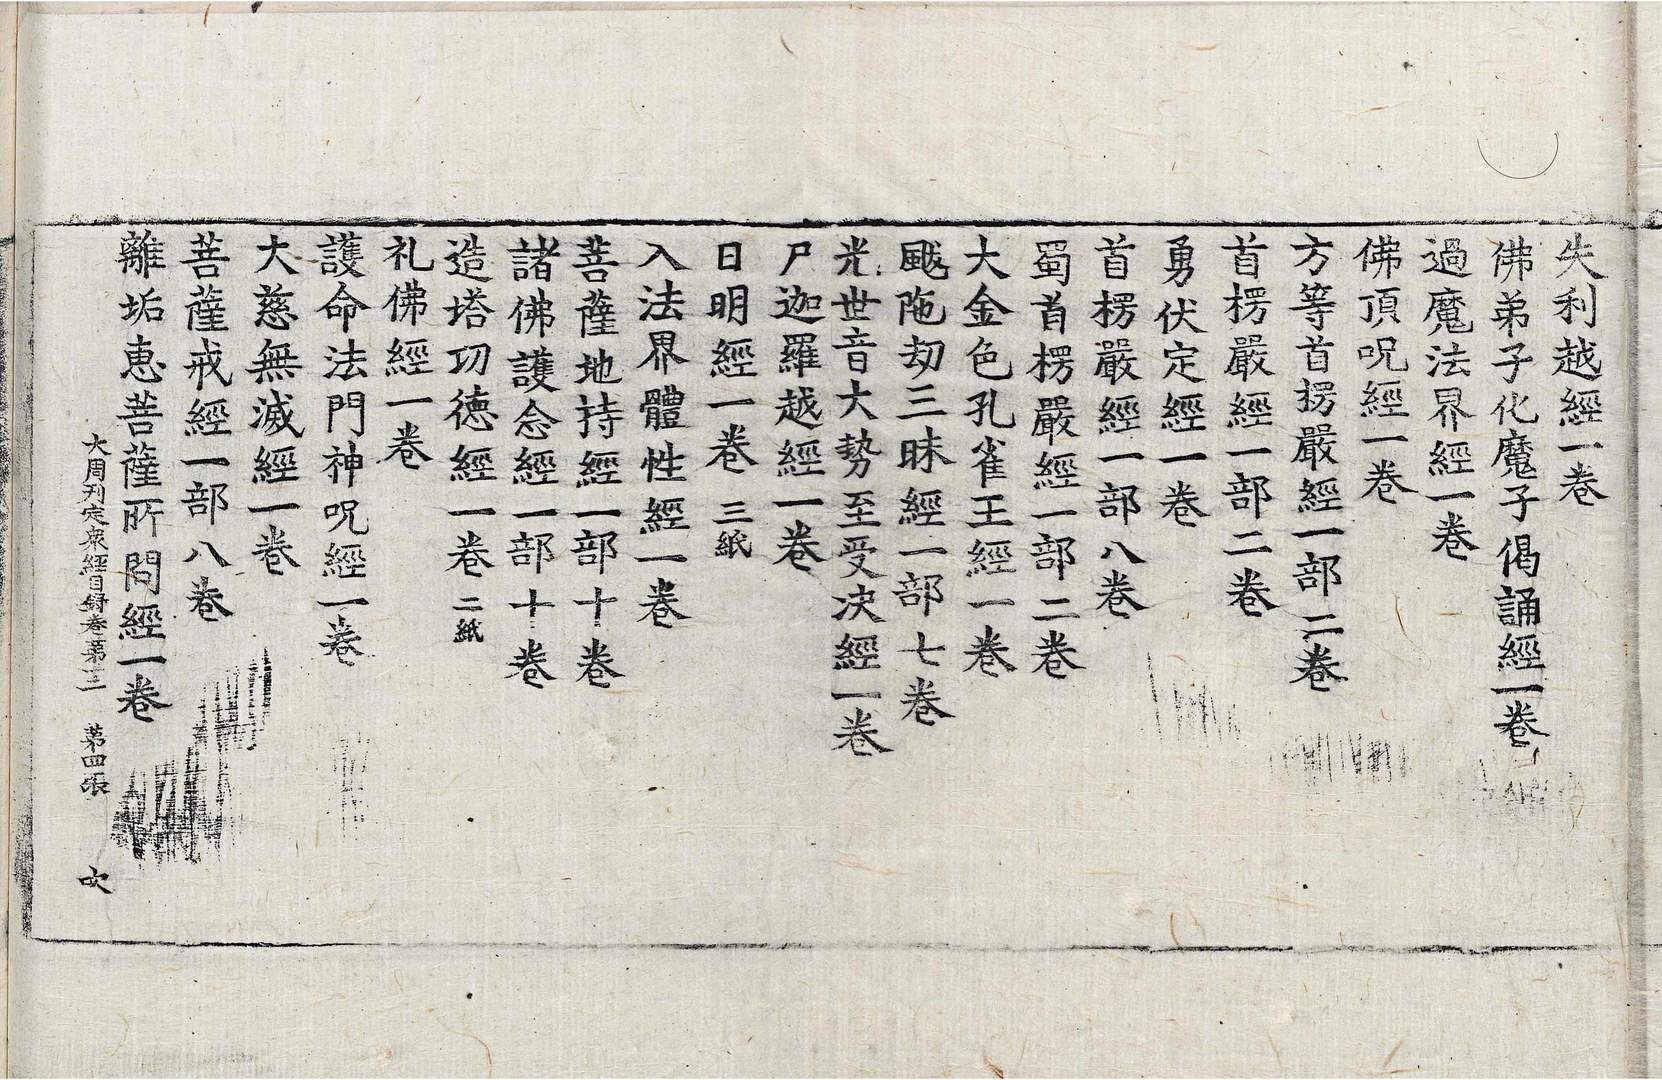 失利越經一卷
佛弟子化魔子偈誦經一卷
過魔法界經一卷
佛頂呪經一卷
方等首楞嚴經一部二卷
首楞嚴經一部二卷
勇伏定經一卷
首楞嚴經一部八卷
蜀首楞嚴經一部二卷
大金色孔雀王經一卷
颰陁劫三昧經一部七卷
光世音大勢至受决經一卷
尸迦羅越經一卷
日明經一卷 三紙
入法界體性經一卷
菩薩地持經一部十卷
諸佛護念經一部十卷
造塔功德經一卷 二紙
礼佛經一卷
護命法門神呪經一卷
大慈無滅經一卷
菩薩戒經一部八卷
離垢惠菩薩所問經一卷
大周刊定衆經目録卷第三 第四張 次